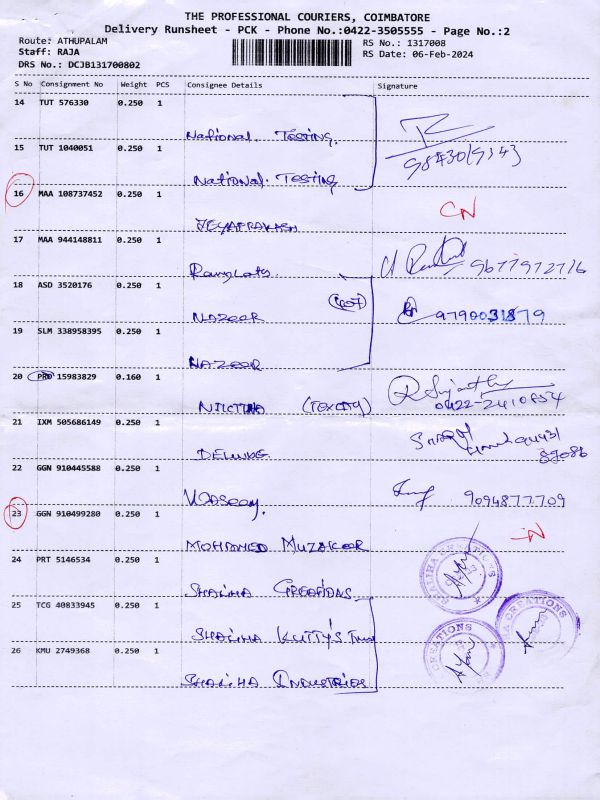 THE PROFESSIONAL COURIERS, COIMBATORE
Delivery Runsheet - PCK - Phone No.:0422-3505555 - Page No.:2
Route: ATHUPALAM
Staff: RAJA
DRS No.: DCJB131700802
RS No.: 1317008
RS Date: 06-Feb-2024
S No Consignment No Weight PCS Consignee Details Signature
14 TUT 576330 0.250 1
National Testing.
15 TUT 1040051 0.250 1
National Testing
16 MAA 108737452 0.250 1 CN
JEYAPRAKASH
17 MAA 944148811 0.250 1
9677972776
18 ASD 3520176 0.250 1
NAZEER
9790031879
19 SLM 338958395 0.250 1
NAZEER
20 PRO 15983829 0.160 1
21 IXM 505686149 0.250 1
DELUXE
22 GGN 910445588 0.250 1
9094877709
23 GGN 910499280 0.250 1
MOHAMED MUZAKEER
24 PRT 5146534 0.250 1
SHALIHA CREATIONS
25 TCG 40833945 0.250 1
SHALIHA KUTTY'S
26 KMU 2749368 0.250 1
SHALIHA INDUSTRIES
SHALIHA CREATIONS
CREATIONS
CREATIONS